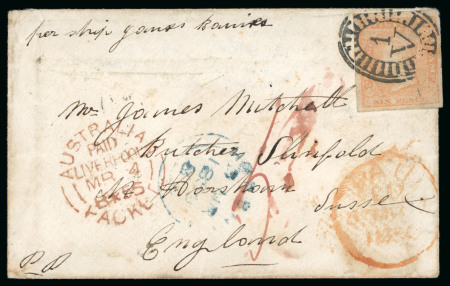 per ship James Baines
1
V
SIX PENCE
Mr James Mitchell
AUSTRALIA
PAID
LIVERPOOL
MR 4
PACKET
Butcher Slinfold
Nr Horsham
Sussex
England
P.P